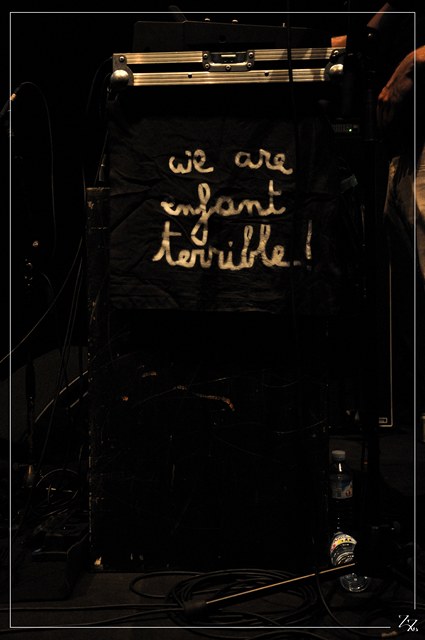 we are
enfant
terrible!